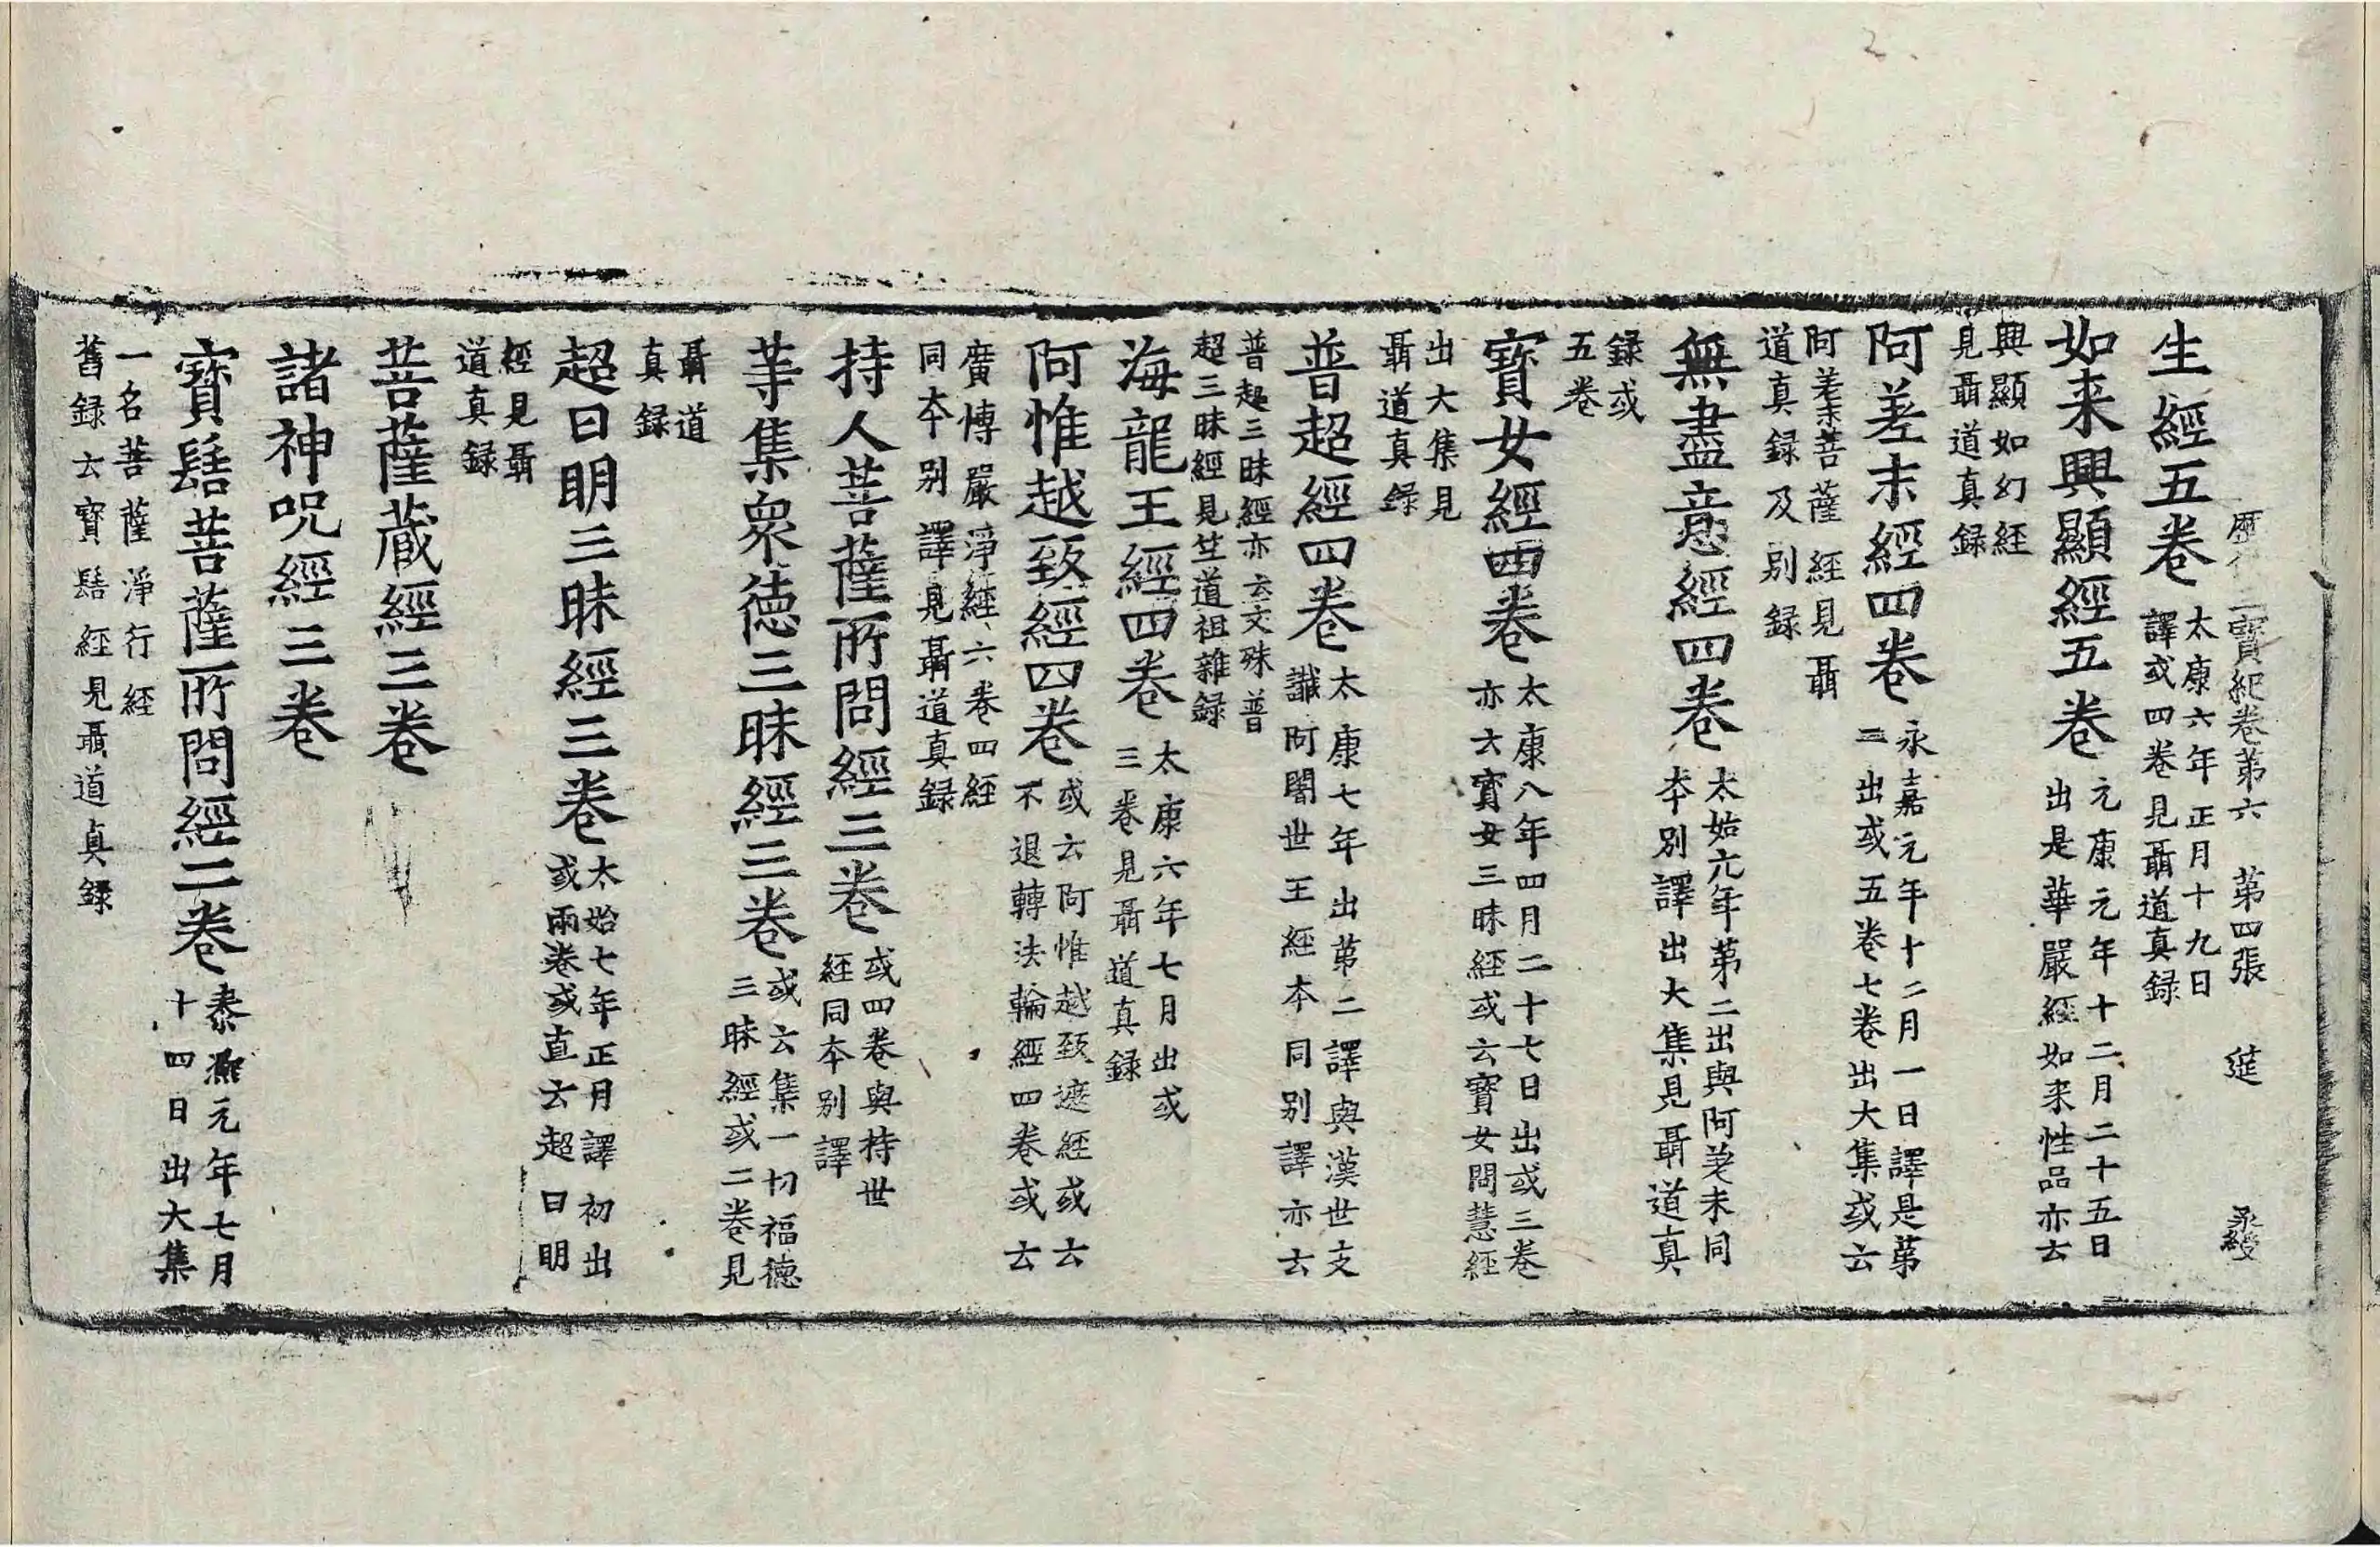 歷代三寶紀卷第六 第四張 莚
生經五卷 太康六年正月十九日
譯或四卷見聶道真録
如来興顯經五卷 元康元年十二月二十五日
出是華嚴經如来性品亦云
興顯如幻經
見聶道真録
阿差末經四卷 永嘉元年十二月一日譯是苐
二出或五卷七卷出大集或云
阿差末菩薩經見聶
道真録及別録
無盡意經四卷 太始元年第二出與阿差末同
本別譯出大集見聶道真
録或
五卷
寶女經四卷 太康八年四月二十七日出或三卷
亦云寶女三昧經或云寶女問慧經
出大集見
聶道真録
普超經四卷 太康七年出第二譯與漢世支
讖阿闍世王經本同別譯亦云
普超三昧經亦云文殊普
超三昧經見竺道祖雜録
海龍王經四卷 太康六年七月出或
三卷見聶道真録
阿惟越致經四卷 或云阿惟越致遮經或云
不退轉法輪經四卷或云
廣博嚴淨經六卷四經
同本别譯見聶道真録
持人菩薩所問經三卷 或四卷與持世
經同本別譯
等集衆德三昧經三卷 或云集一切福德
三昧經或二卷見
聶道
真録
超日明三昧經三卷 太始七年正月譯初出
或兩卷或直云超日明
經見聶
道真録
菩薩藏經三卷
諸神呪經三卷
寶髻菩薩所問經二卷 泰熈元年七月
十四日出大集
一名菩薩淨行經
舊録云寶髻經見聶道真録